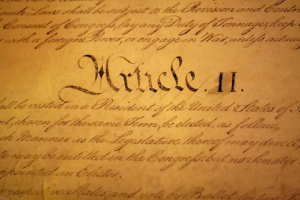 such Laws shall be subject to the Revision and Cont
Consent of Congress, lay any Duty of Tonnage, keep
with a foreign Power, or engage in War, unless actua
Article. II.
all be vested in a President of the United States of A
chosen for the same Term, be elected, as follows
ch Manner as the Legislature thereof may direct
te may be entitled in the Congress: but no Senato
ppointed an Elector.
respective States, and vote by Ballot